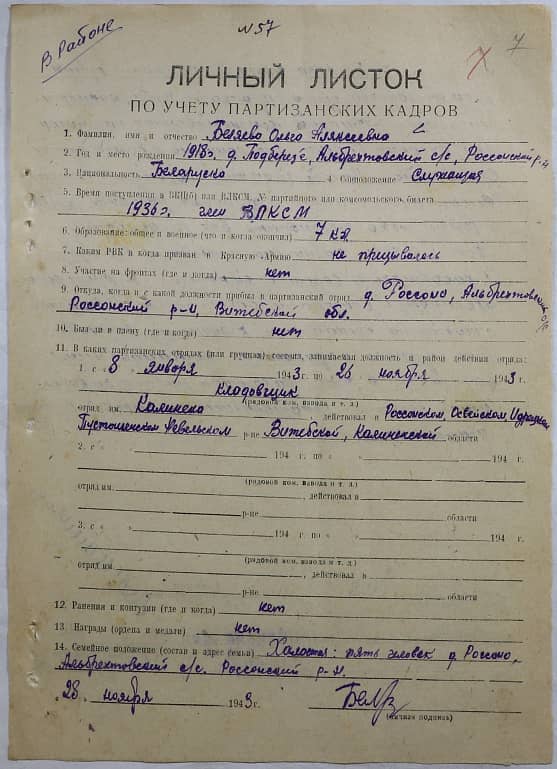 В Районе
№ 57
7 7
ЛИЧНЫЙ ЛИСТОК
ПО УЧЕТУ ПАРТИЗАНСКИХ КАДРОВ
1. Фамилия, имя и отчество Беляева Ольга Алексеевна
2. Год и место рождения 1918г. д. Подберезье, Альбрехтовский с/с, Россонский р-н
3. Национальность Беларуска 4. Соцположение Служащая
5. Время поступления в ВКП(б) или ВЛКСМ, № партийного или комсомольского билета
1936г. член ВЛКСМ
6. Образование: общее и военное (что и когда окончил) 7 кл.
7. Каким РВК и когда призван в Красную Армию не призывалась
8. Участие на фронтах (где и когда) нет
9. Откуда, когда и с какой должности прибыл в партизанский отряд д. Россоно, Альбрехтовский с/с
Россонский р-н, Витебской обл.
10. Был ли в плену (где и когда) нет
11. В каких партизанских отрядах (или группах) состоял, занимаемая должность и район действия отряда:
1. с 8 января 1943 г. по 26 ноября 1943 г.
кладовщик
(рядовой ком. взвода и т. д.)
отряд им. Калинина, действовал в Россонском, Освейском, Идрицком
Пустошенском Невельском р-не Витебской, Калининской области
2. с « » 194 г. по « » 194 г.
(рядовой ком. взвода и т. д.)
отряд им. , действовал в
р-не области
3. с « » 194 г. по « » 194 г.
(рядовой ком. взвода и т. д.)
отряд им. , действовал в
р-не области
12. Ранения и контузии (где и когда) нет
13. Награды (ордена и медали) нет
14. Семейное положение (состав и адрес семьи) Холостая: пять человек д. Россоно,
Альбрехтовский с/с. Россонский р-н.
28 ноября 1943 г.
(личная подпись)